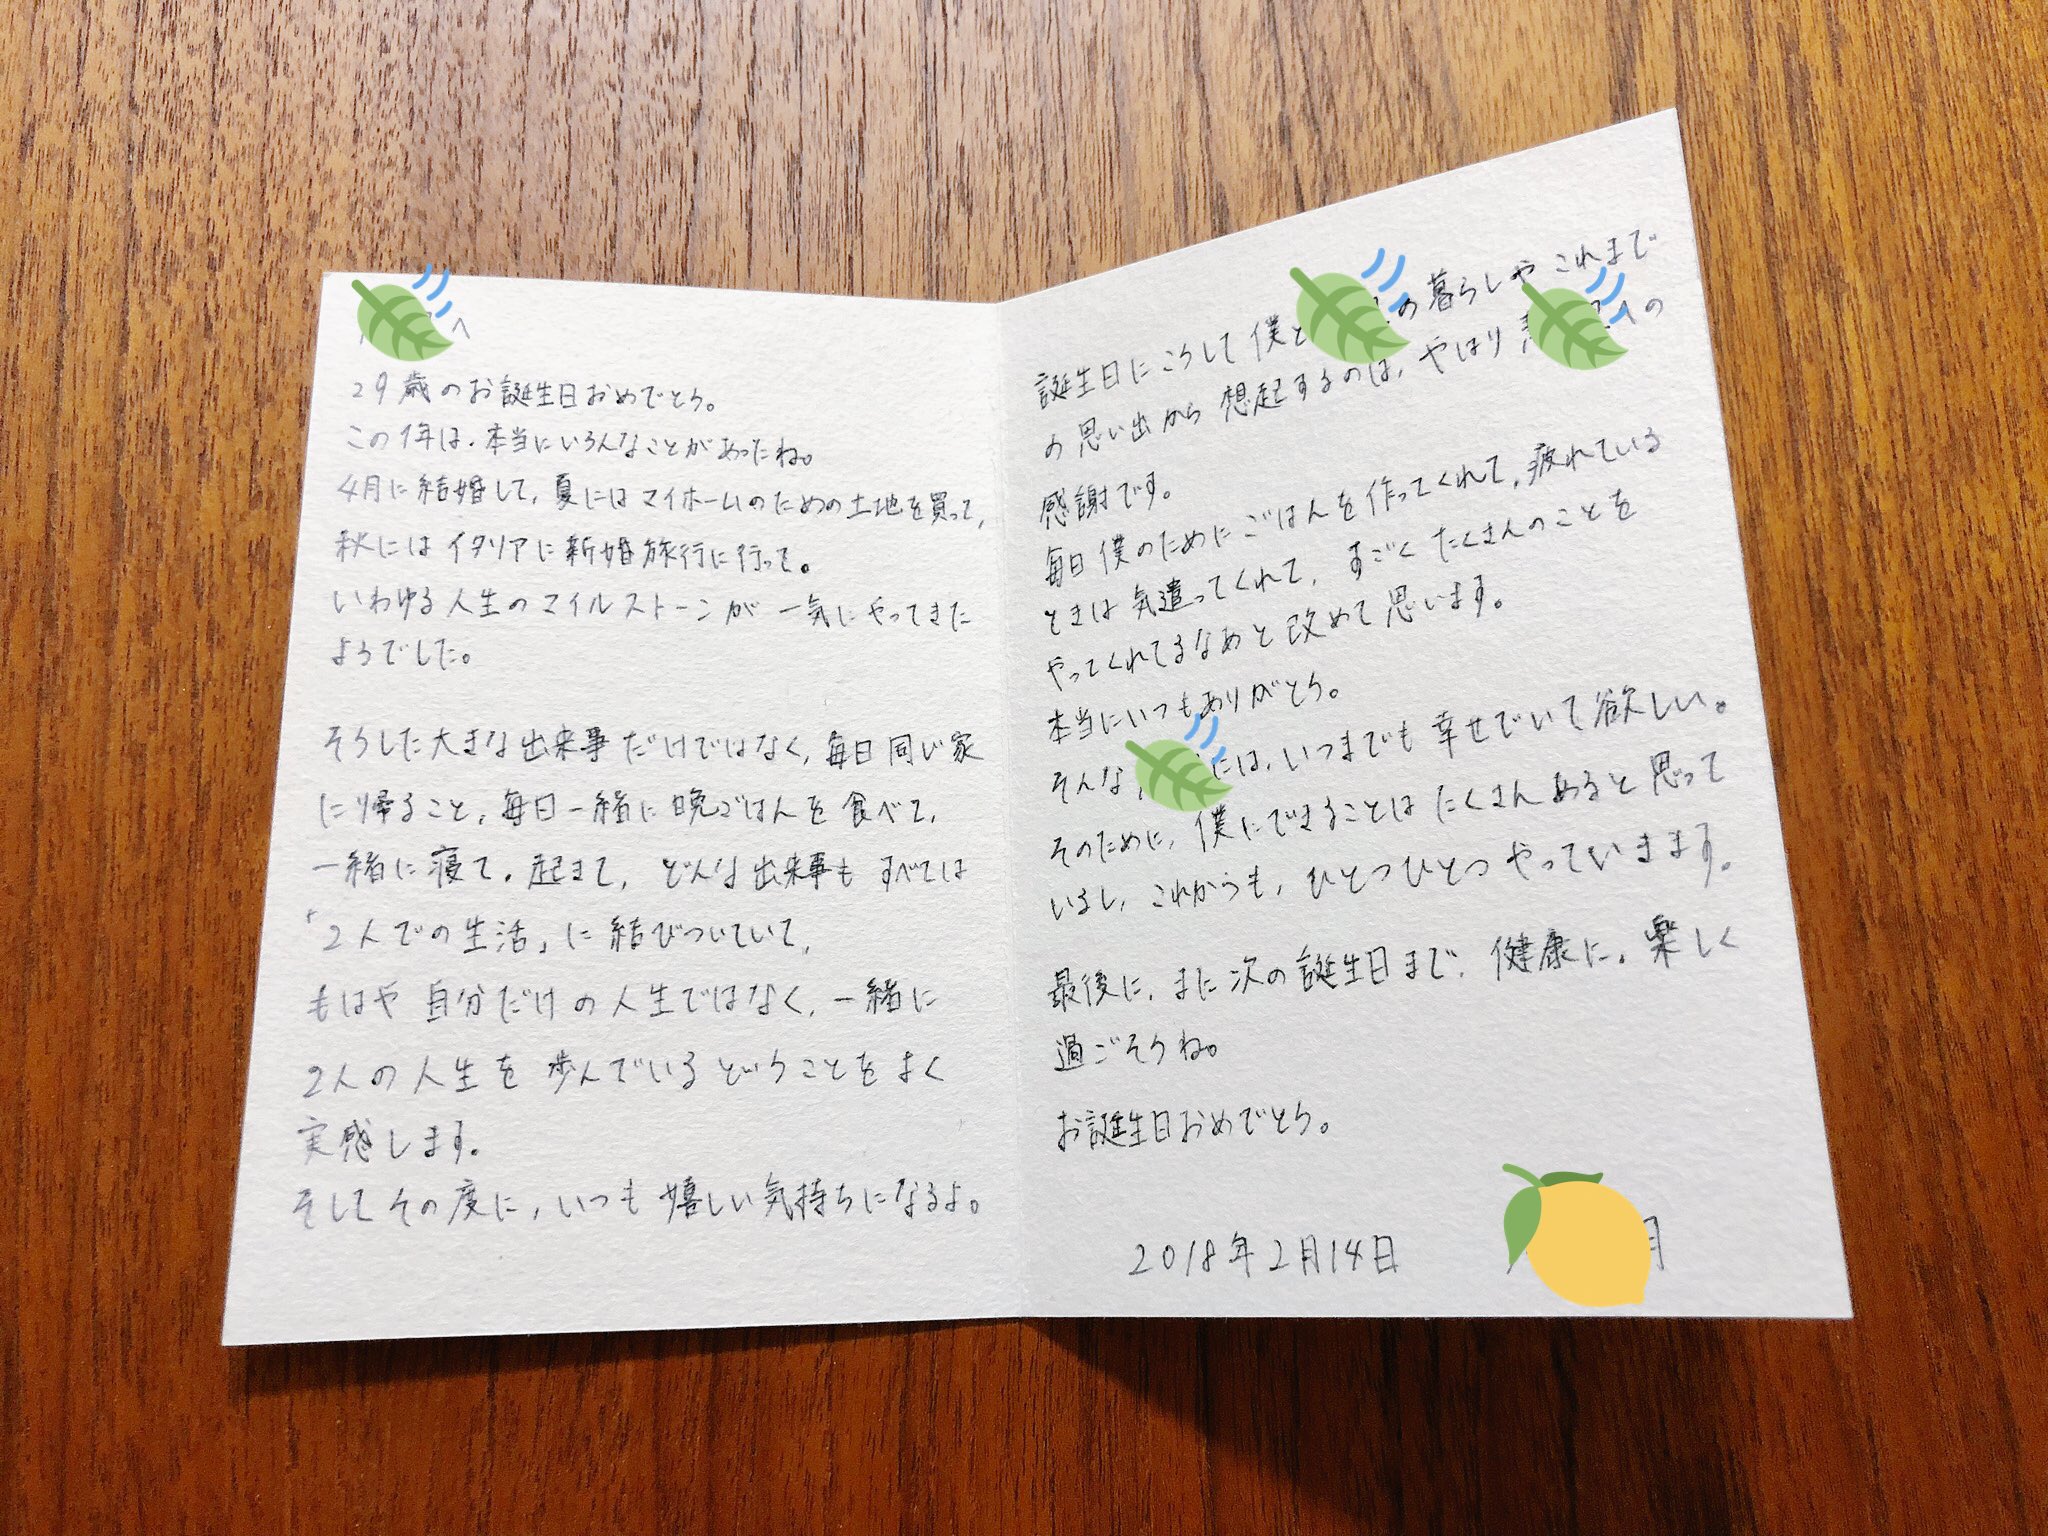 へ
29歳のお誕生日おめでとう。
この1年は、本当にいろんなことがあったね。
4月に結婚して、夏にはマイホームのための土地を買って、
秋にはイタリアに新婚旅行に行って。
いわゆる人生のマイルストーンが一気にやってきた
ようでした。
そうした大きな出来事だけではなく、毎日同じ家
に帰ること、毎日一緒に晩ごはんを食べて、
一緒に寝て、起きて、どんな出来事もすべては
「2人での生活」に結びついていて、
もはや自分だけの人生ではなく、一緒に
2人の人生を歩んでいるということをよく
実感します。
そしてその度に、いつも嬉しい気持ちになるよ。
誕生日にこうして僕と の暮らしやこれまで
の思い出から想起するのは、やはり への
感謝です。
毎日僕のためにごはんを作ってくれて、疲れている
ときは気遣ってくれて、すごくたくさんのことを
やってくれてるなあと改めて思います。
本当にいつもありがとう。
そんな には、いつまでも幸せでいて欲しい。
そのために、僕にできることはたくさんあると思って
いるし、これからも、ひとつひとつやっていきます。
最後に、また次の誕生日まで、健康に、楽しく
過ごそうね。
お誕生日おめでとう。
2018年2月14日